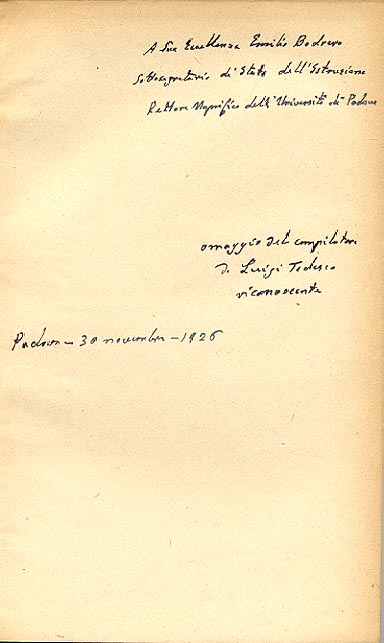 A Sua Eccellenza Emilio Bodrero
Sottosegretario di Stato dell'Istruzione
Rettore Magnifico dell'Università di Padova
omaggio del compilatore
Luigi Tedesco
riconoscente
Padova - 30 novembre - 1926